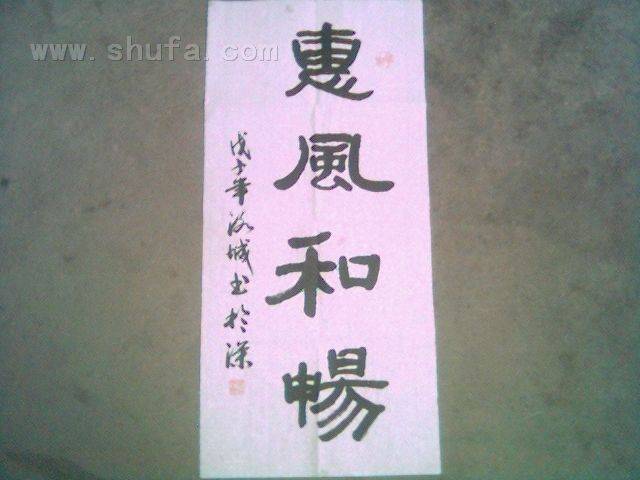 www.shufa.com
惠風和暢
戊子年海城書於深